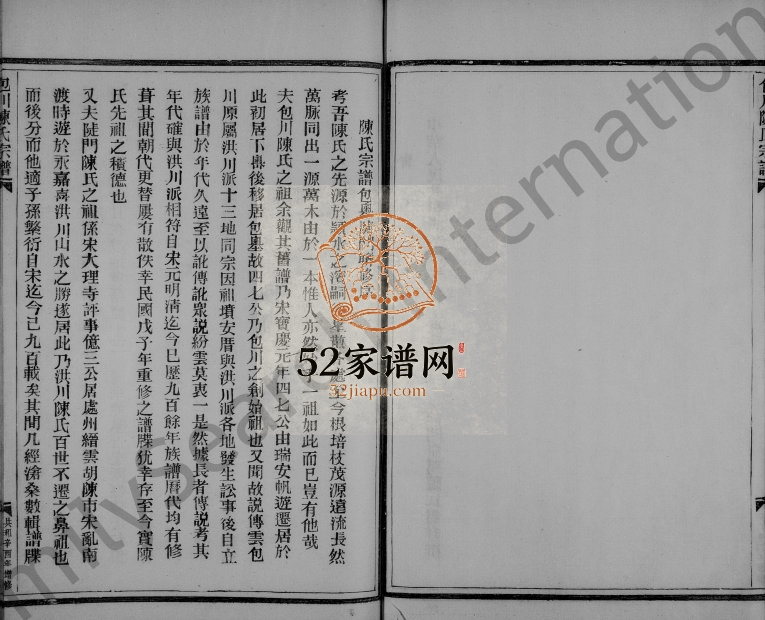 陳氏宗譜包
考吾陳氏之先源於潁水之
至今根培枝茂源遠流長然
萬脈同出一源萬木由於一本惟人亦然
一祖如此而已豈有他哉
夫包川陳氏之祖余觀其舊譜乃宋寶慶元年四七公由瑞安帆遊遷居於
此初居下
後移居包
故四七公乃包川之創始祖也又聞故説傳雲包
川原屬洪川派十三地同宗因祖墳安厝與洪川派各地發生訟事後自立
族譜由於年代久遠至以訛傳訛眾説紛雲莫衷一是然據長者傳説考其
年代確與洪川派相符自宋元明清迄今巳歷九百餘年族譜曆代均有修
葺其間朝代更替屢有散佚幸民國戊子年重修之譜牒犹幸存至今實陳
氏先祖之積德也
又夫陡門陳氏之祖係宋大理寺評事億三公居處州縉雲胡陳市宋亂南
渡時遊於永嘉喜洪川山水之勝遂居此乃洪川陳氏百世不遷之鼻祖也
而後分而他適子孫繁衍自宋迄今己九百載矣其間几經滄桑數輯譜牒
包川陳氏宗譜
共和辛酉年增修
包川陳氏宗譜
52家谱网
52jiapu.com
FamilySearch International